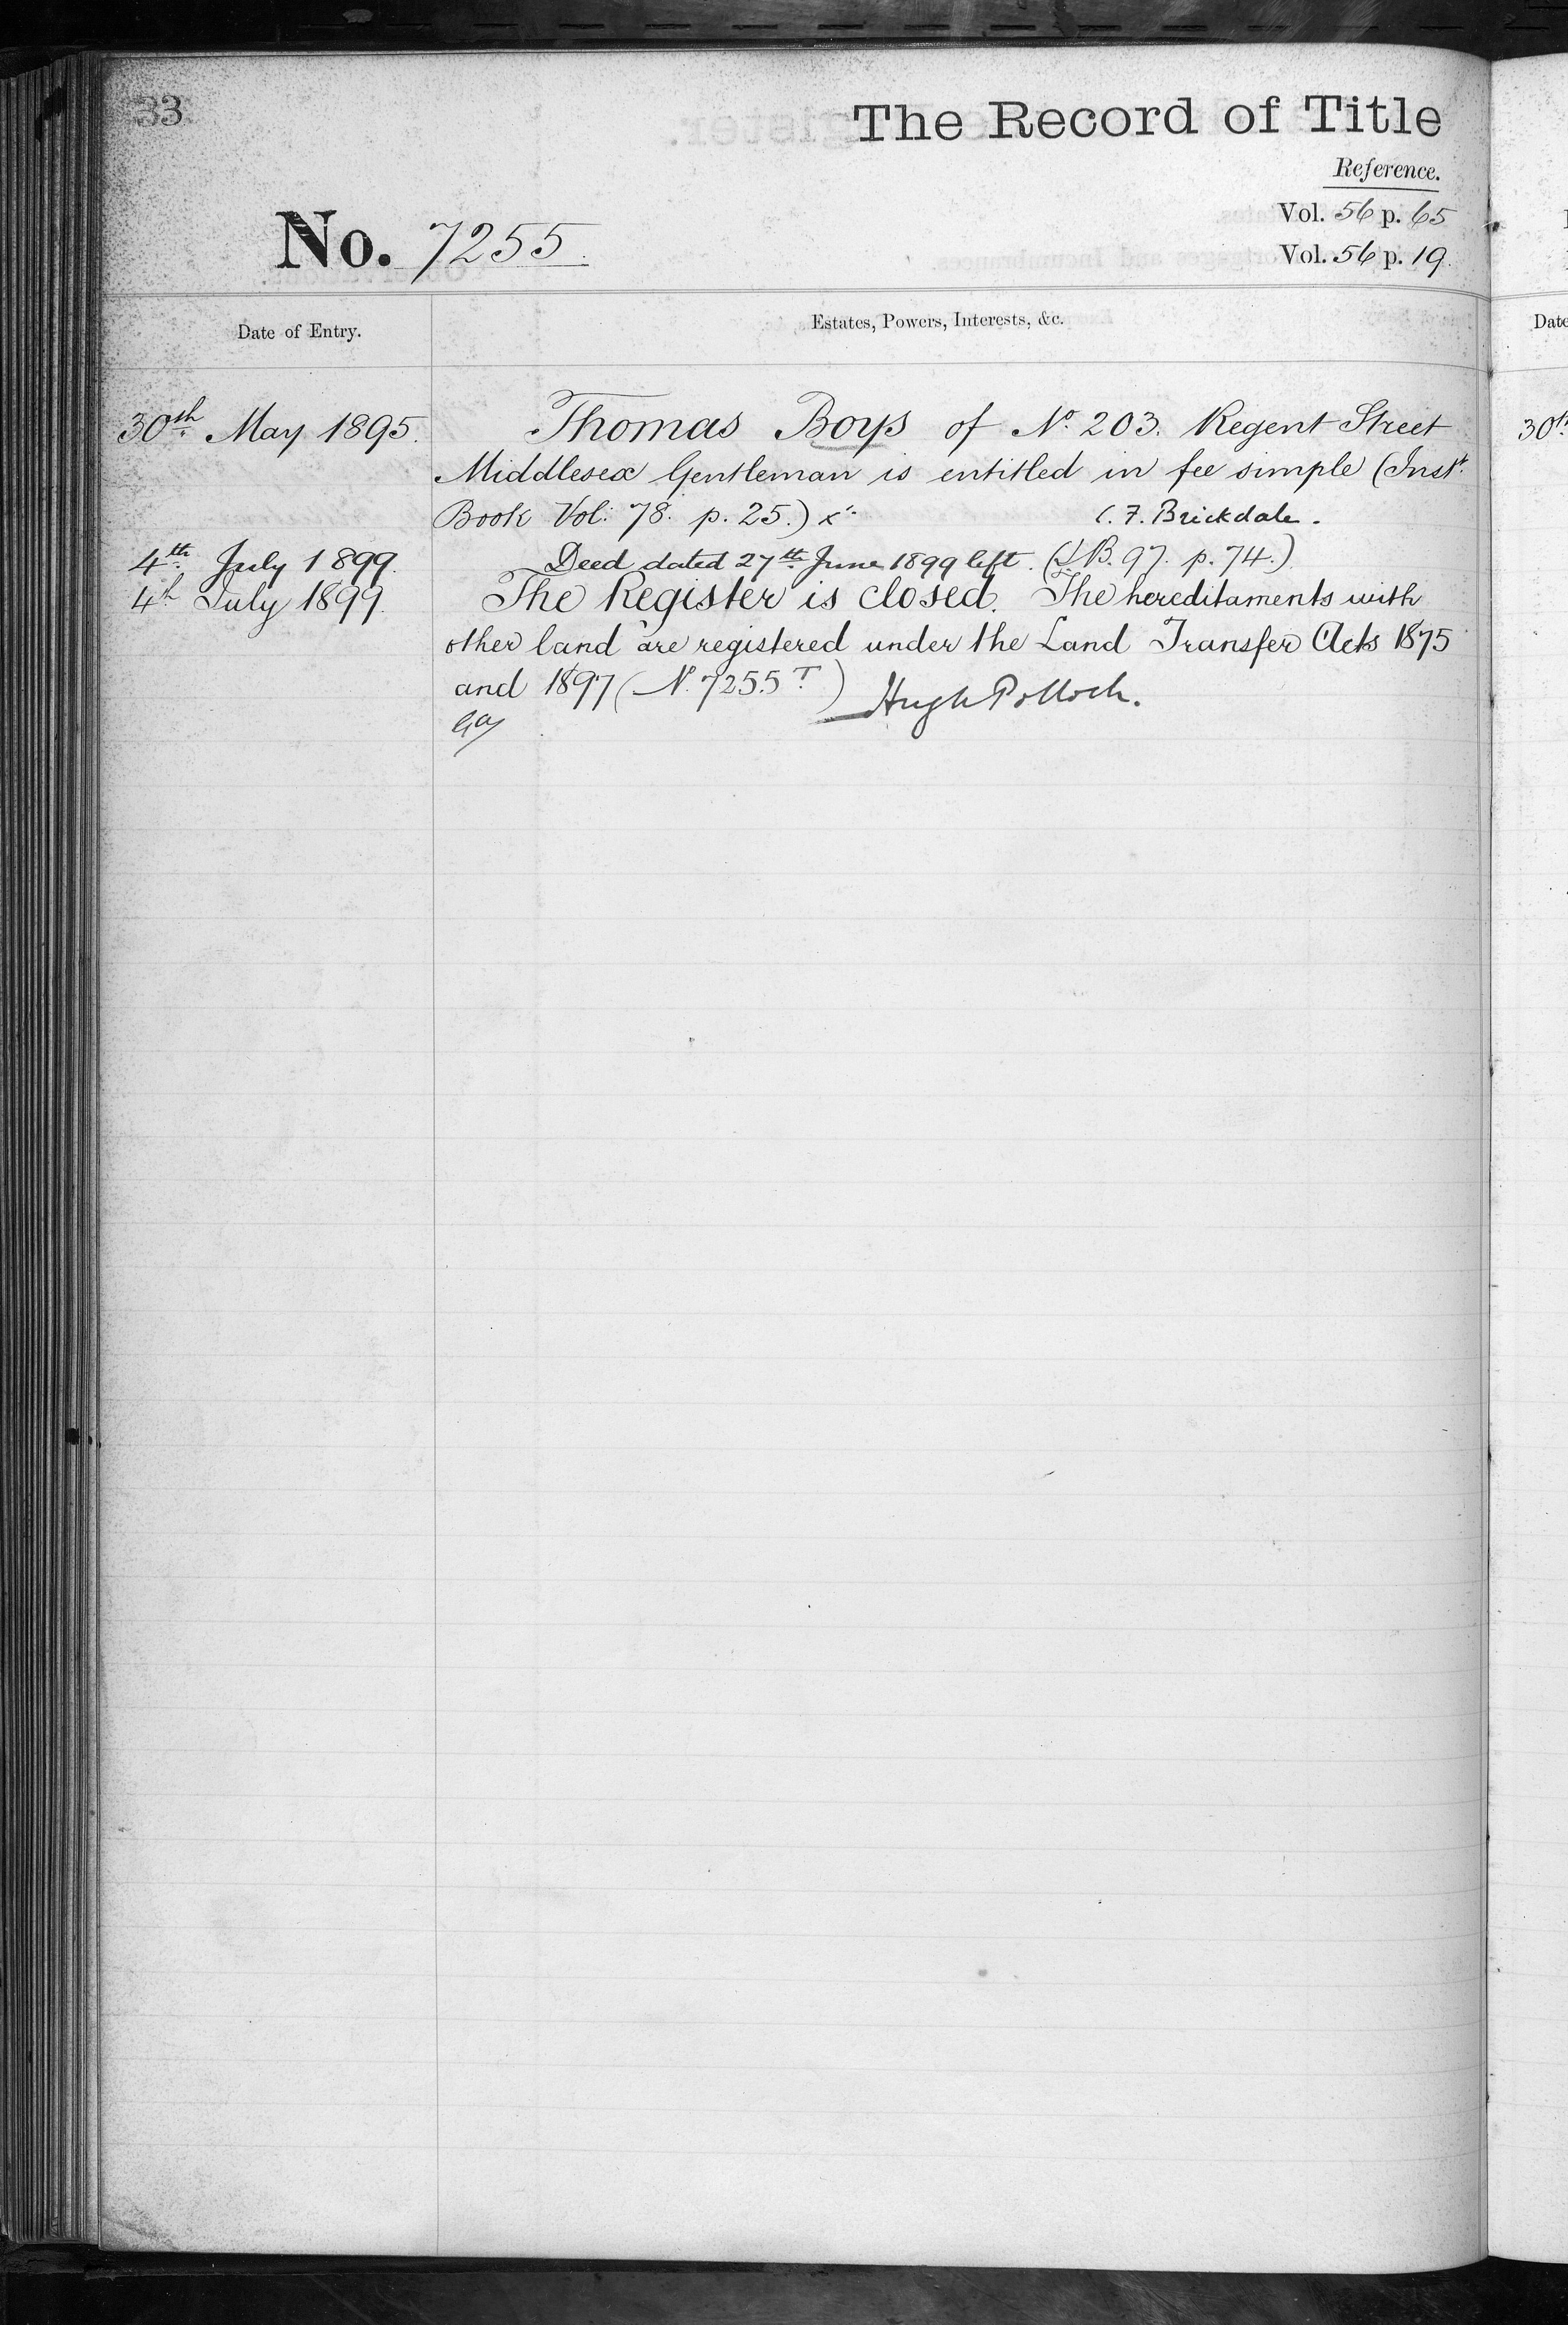 33
The Record of Title
Reference.
Vol. 56 p. 65
No. 7255.
Vol. 56 p. 19.
Date of Entry.
Estates, Powers, Interests, &c.
Date
30th May 1895. Thomas Boys of No. 203. Regent Street
30th
Middlesex Gentleman is entitled in fee simple (Inst.
Book Vol: 78. p. 25.) C. F. Brickdale.
4th July 1899. Deed dated 27th June 1899 left. (I.B. 97. p. 74.)
4th July 1899. The Register is closed. The hereditaments with
other land are registered under the Land Transfer Acts 1875
and 1897 (N. 7255 T.) Hugh Pollock.